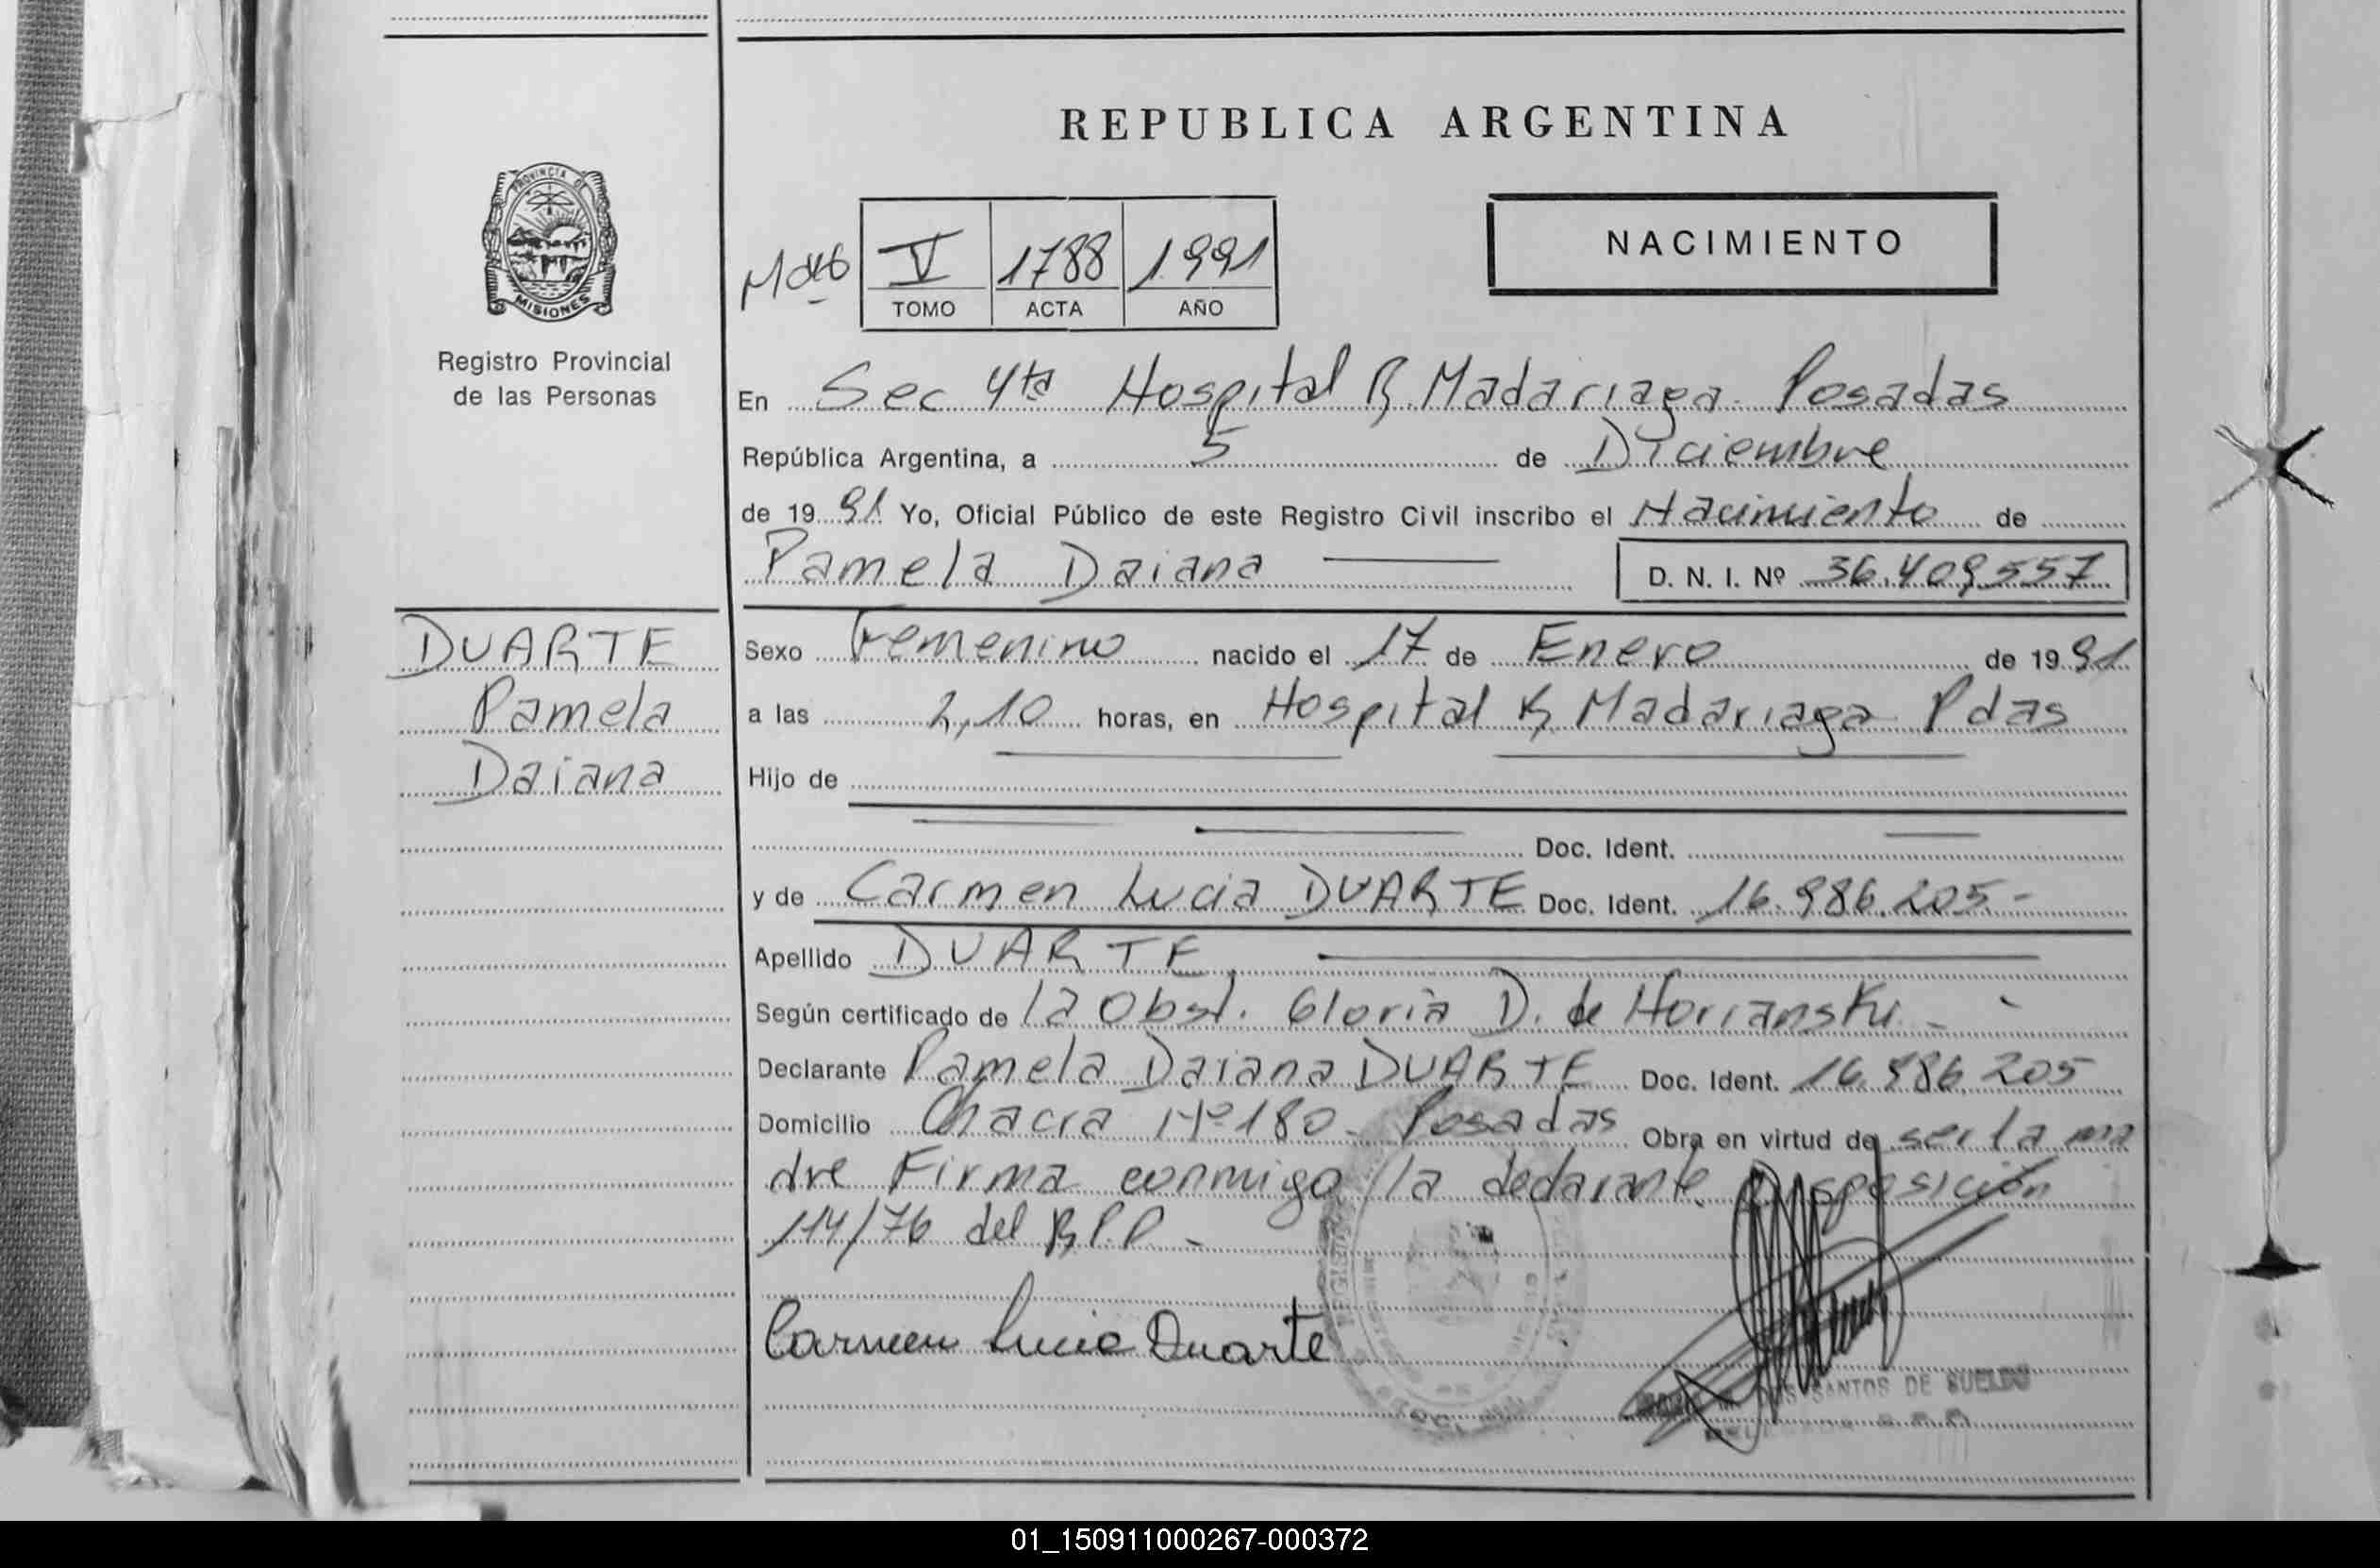 REPUBLICA ARGENTINA
PROVINCIA DE
MISIONES
Registro Provincial
de las Personas
V 1788 1991
TOMO ACTA AÑO
NACIMIENTO
En Sec 4ta Hospital R Madariaga Posadas
República Argentina, a 5 de Diciembre
de 1991 Yo, Oficial Público de este Registro Civil inscribo el Nacimiento de
Pamela Daiana D. N. I. Nº 36.409557
DUARTE
Pamela
Daiana
Sexo Femenino nacido el 17 de Enero de 1991
a las 2,10 horas, en Hospital R Madariaga Pdas
Hijo de
Doc. Ident.
y de Carmen Lucia DUARTE Doc. Ident. 16.986.205-
Apellido DUARTE
Según certificado de la Obst. Gloria D. de
Declarante Pamela Daiana DUARTE Doc. Ident. 16.986.205
Domicilio Chacra Nº 180- Posadas Obra en virtud de ser la ma
dre Firma conmigo la declarante Disposición
114/76 del R.P.P-
Carmen Lucia Duarte
SANTOS DE SUELDO
01_150911000267-000372